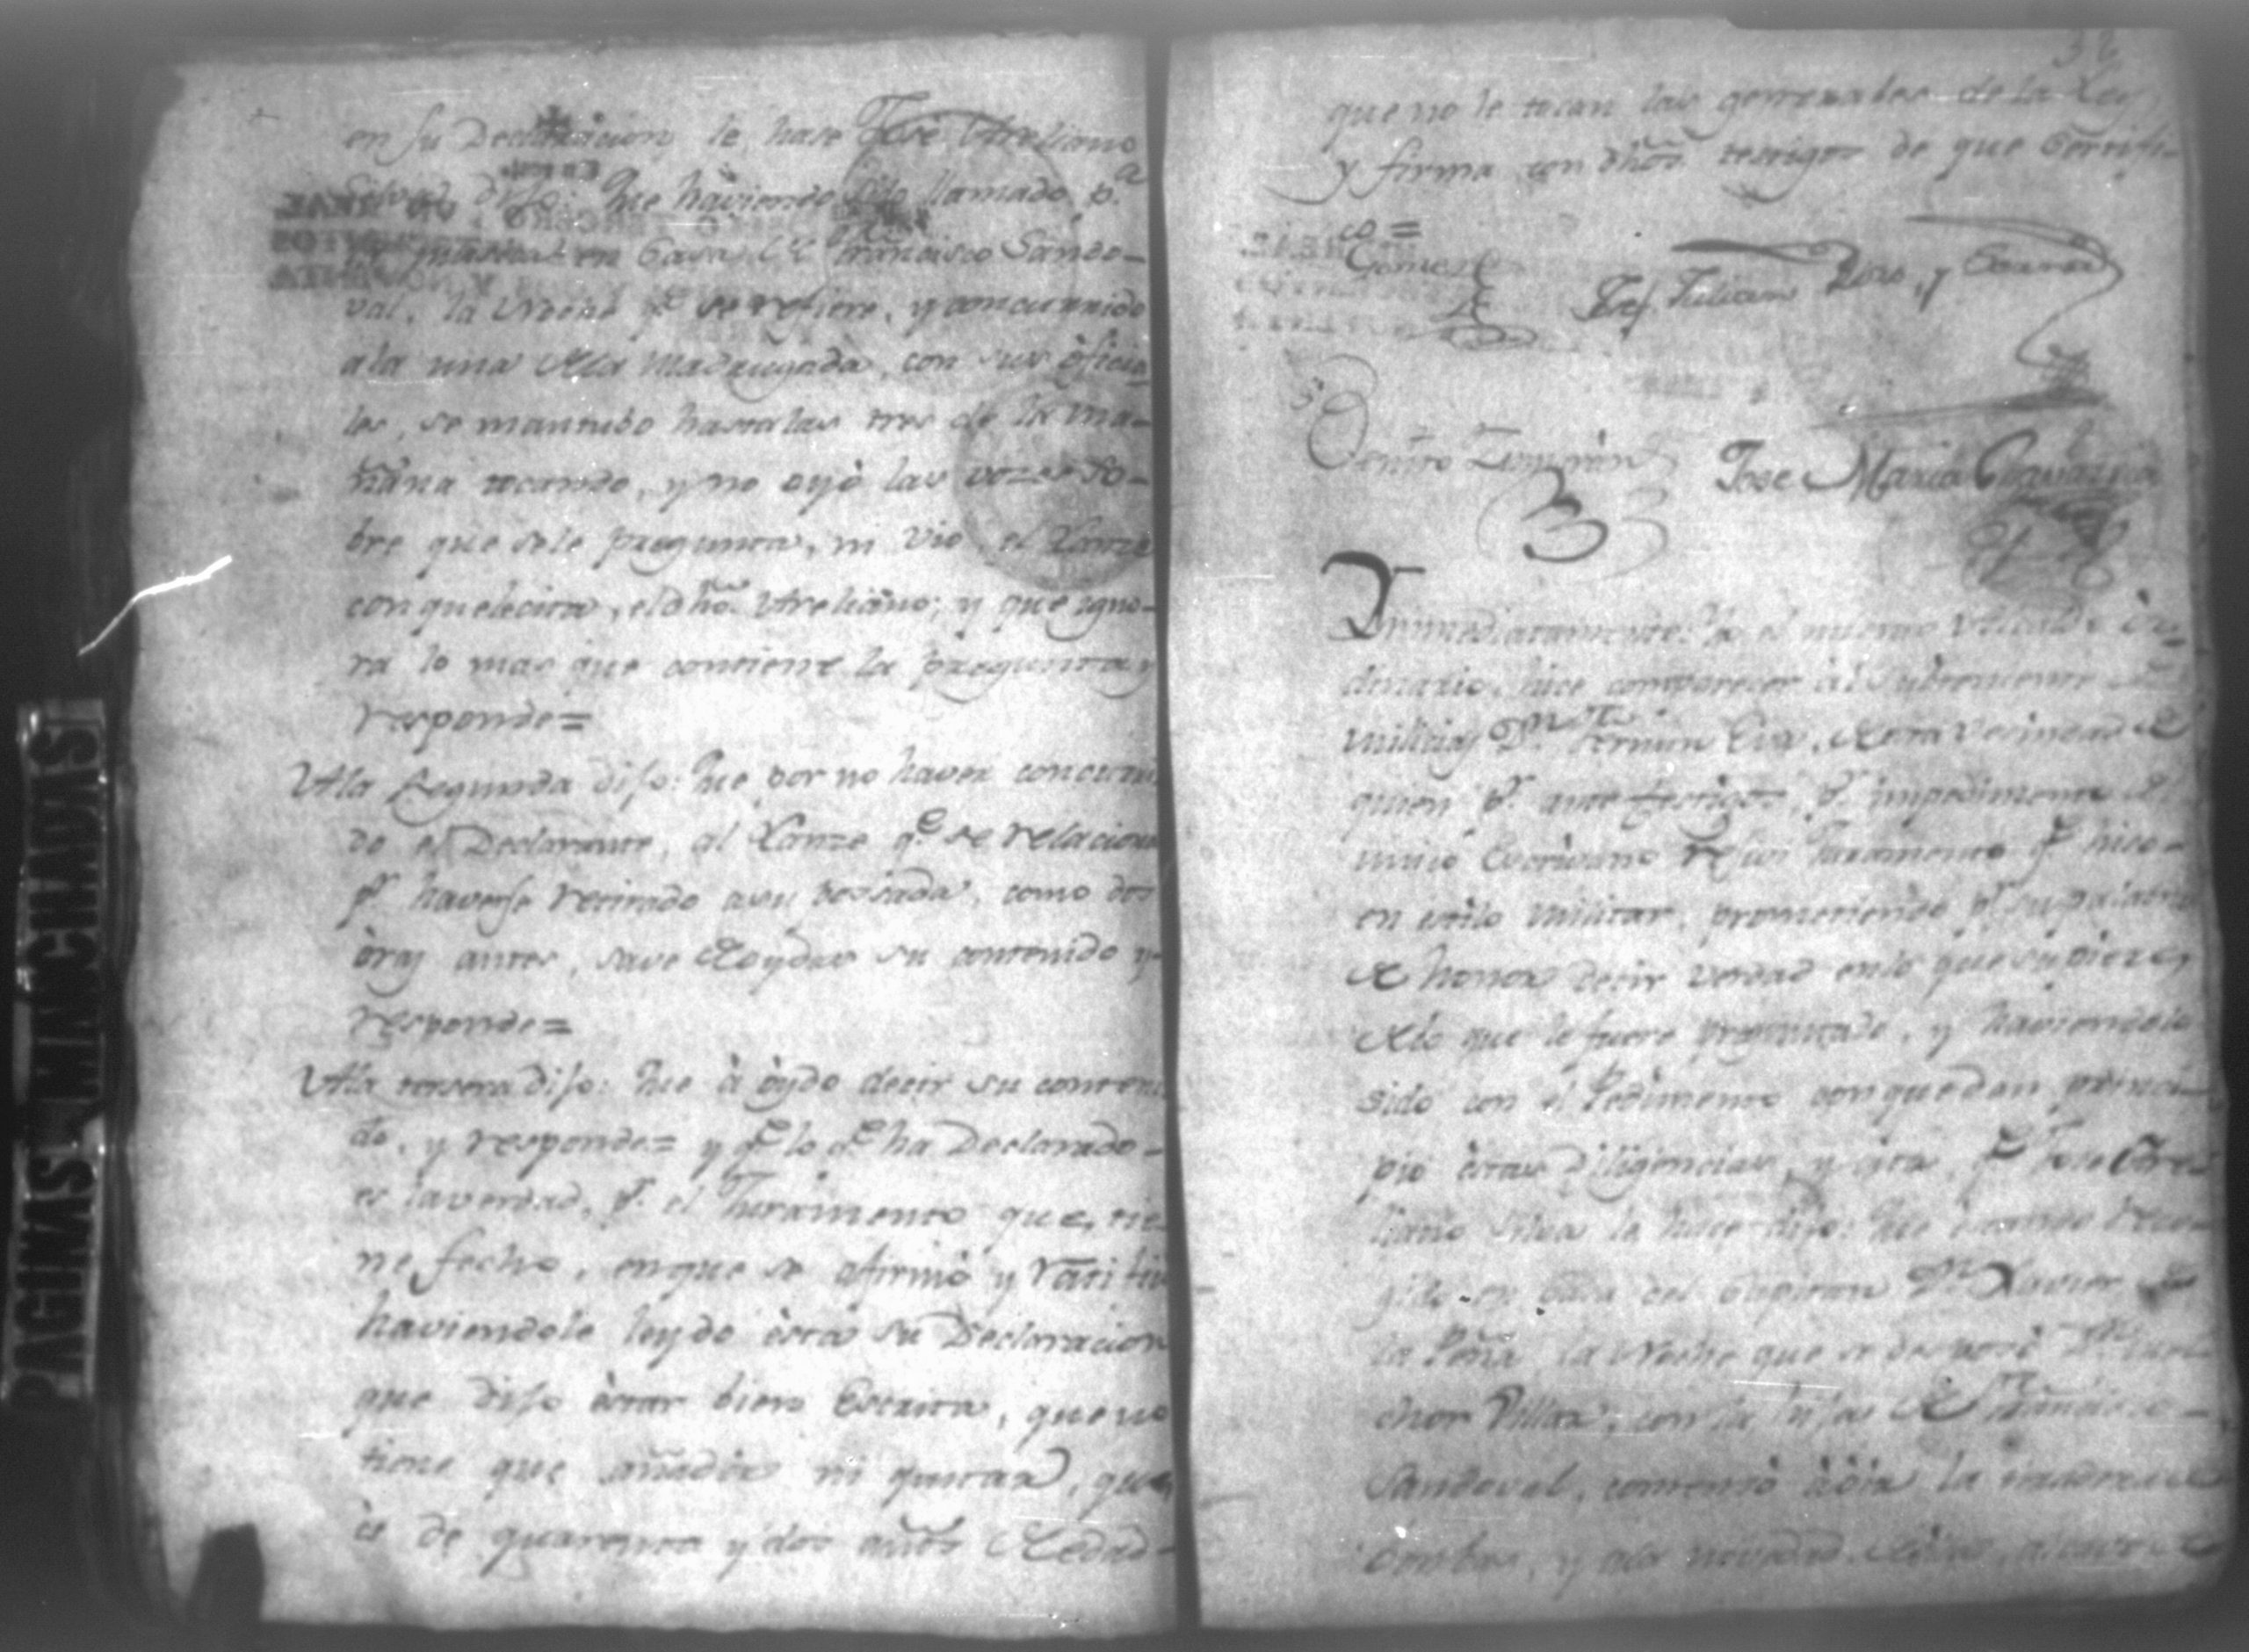 en su Declaracion, le hase José Aureliano
Silva, dijo: Que haviendo sido llamado p.ª
en Casa de Francisco Sando-
val, la Noche q.e se refiere, y concurrido
ala una dela Madrugada, con sus oficia
les, se mantubo hastalas tres de la ma-
ñana tocando, y no oyó las vozes so-
bre que sele pregunta, ni vio el Lanze
con quelecita, el dho. Aureliano; y que igno-
ra lo mas que contiene la pregunta y
responde=
Ala Segunda dijo: Que por no haver concurri
do el Declarante, al Lanze q.e se relaciona
p.r haverse retirado asu possada, como dos
òras antes, save de oydas su contenido y
responde=
Ala tersera dijo: Que à òydo decir su conteni
do, y responde= y q.e lo q.e ha Declarado-
es la verdad, p.r el Juramento que, tie
ne fecho, enque se afirmò y ratificò
haviendole leydo èsta su Declaracion
que dijo èstar bien Escrita, que no
tiene que añadir ni quitar, que
ès de quarenta y dos años de edad-
que no le tocan las generales de la Ley
y firma con dhos testigos de que Certifi-
co=
Gomez
Josef Julian y
Benito
Jose Maria
Inmediatamente Yo el mismo Alcalde Òr-
dinario, hice comparecer àl subteniente de
Milicias D.n Fermin de esta Vecindad de
quien p.r ante testigos, p.r impedimento del
unico Escrivano resivi Juramento q.e hico-
en estilo Militar, prometiendo p.r su palabra
de honor decir verdad enlo que supiere,
delo que le fuere preguntado, y haviendolo
sido con el Pedimento con que dan princi-
pio èstas Diligencias, y cita q.e Jose Aure-
liano Silva le hace dijo: Que estando reco-
jido en Casa del Capitan D.n Xavier de
la Peña la Noche que se desposó D.n Mel-
chor Villar, con la hija de Francisco-
Sandoval, comensó àòir la